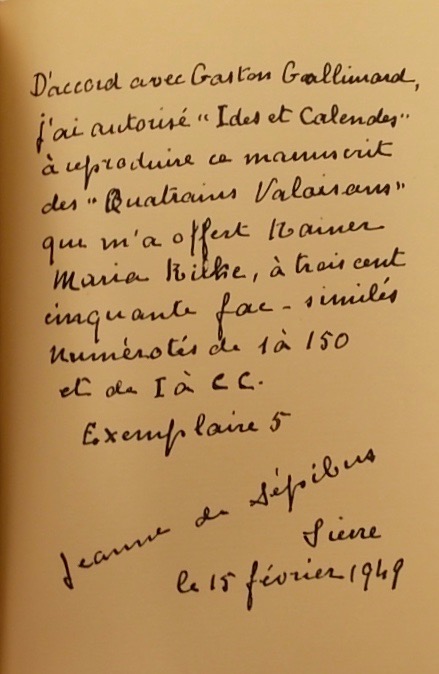 D'accord avec Gaston Gallimard,
j'ai autorisé "Ides et Calendes"
à reproduire ce manuscrit
des "Quatrains Valaisans"
que m'a offert Rainer
Maria Rilke, à trois cent
cinquante fac-similés
numérotés de 1 à 150
et de I à CC.
Exemplaire 5
Jeanne de Sépibus
Sierre
le 15 février 1949